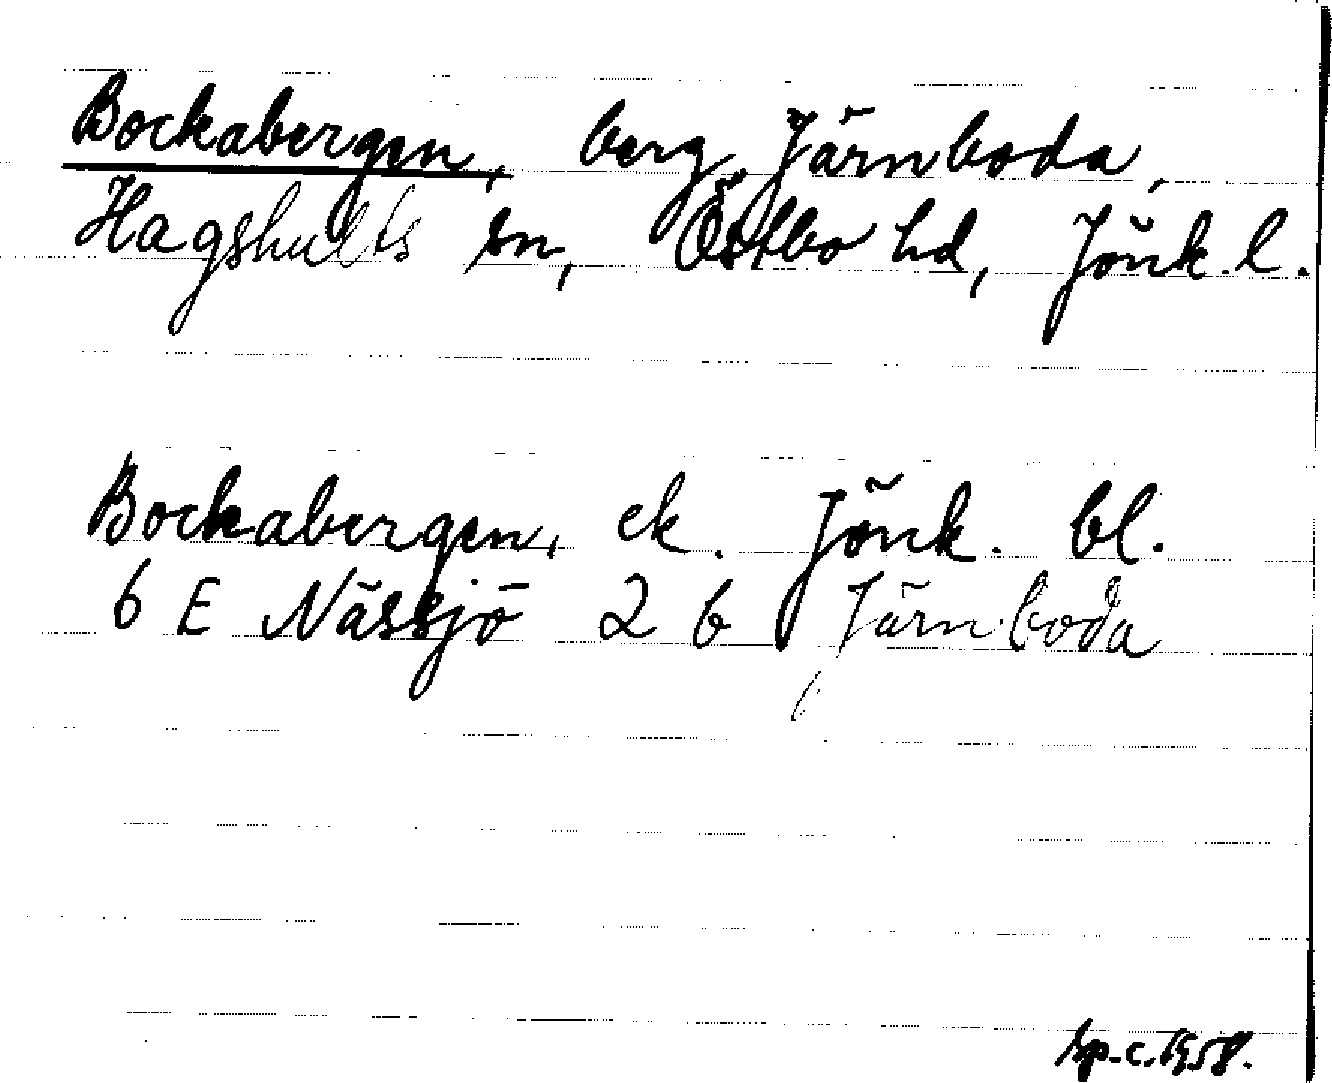 Bockabergen, berg, Järnboda,
Hagshults sn, Östbo hd, Jönk. l.
Bockabergen, ek. Jönk. bl.
6 E Nässjö 2 b Järnboda
sp. c. 1958.